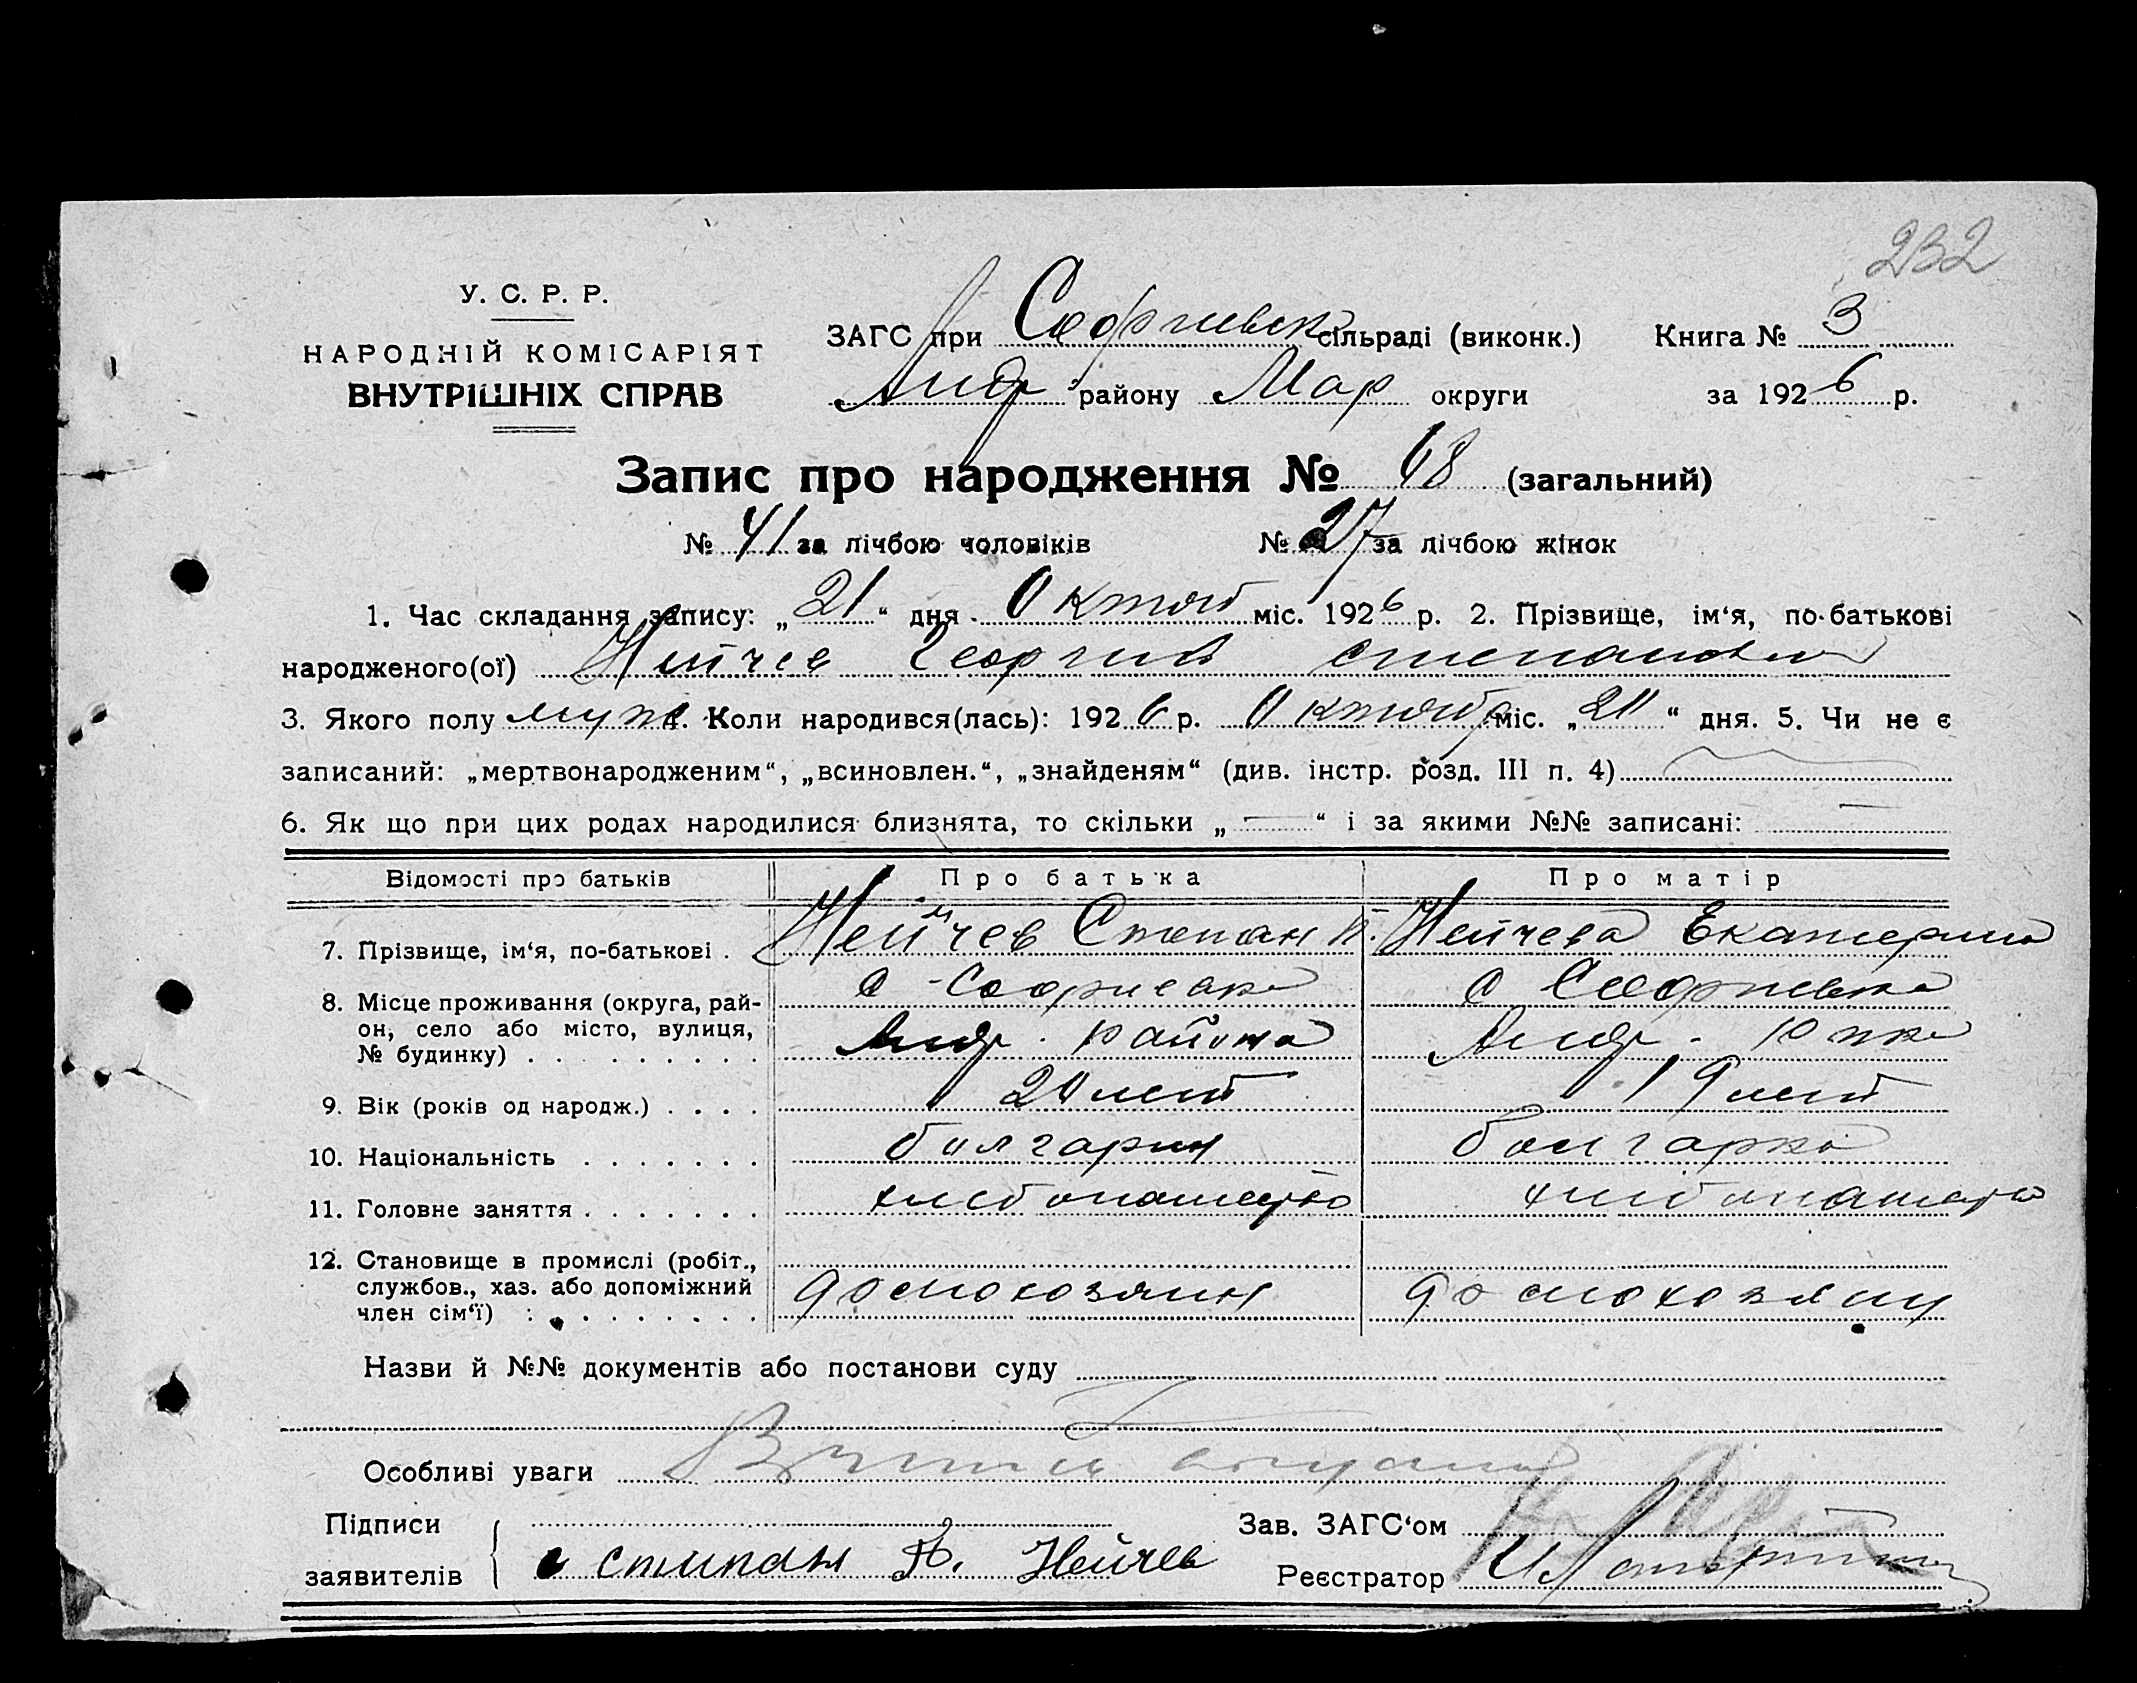 232
У. С. Р. Р.
НАРОДНІЙ КОМІСАРІЯТ
ВНУТРІШНІХ СПРАВ
ЗАГС при Софиевск сільраді (виконк.) Книга № 3
Андр району Мар округи за 1926 р.
Запис про народження № 68 (загальний)
№ 41 за лічбою чоловіків № 27 за лічбою жінок
1. Час складання запису: „21“ дня Октяб міс. 1926 р. 2. Прізвище, ім‘я, по-батькові
народженого(ої) Нейчев Георгий Степанов
3. Якого полу муж 4. Коли народився(лась): 1926 р. Октябр міс. „20“ дня. 5. Чи не є
записаний: „мертвонародженим“, „всиновлен.“, „знайденям“ (див. інстр. розд. III п. 4)
6. Як що при цих родах народилися близнята, то скільки „—“ і за якими №№ записані: —
Відомості про батьків Про батька Про матір
7. Прізвище, ім‘я, по-батькові . Нейчев Степан П. Нейчева Екатерина
8. Місце проживання (округа, рай-
он, село або місто, вулиця,
№ будинку) . . . . . . . . .
с Софиевка с Софиевка
Андр. района Андр.
9. Вік (років од народж.) . . . . 20 лет 19 лет
10. Національність . . . . . . . болгарин болгарка
11. Головне заняття . . . . . . . хлебопашество хлебопаш
12. Становище в промислі (робіт.,
службов., хаз. або допоміжний
член сім‘ї) : . . . . . . . .
домохозяин домохозяин
Назви й №№ документів або постанови суду
Особливі уваги
Підписи
заявителів
степан П. Нейчев
Зав. ЗАГС‘ом
Реєстратор